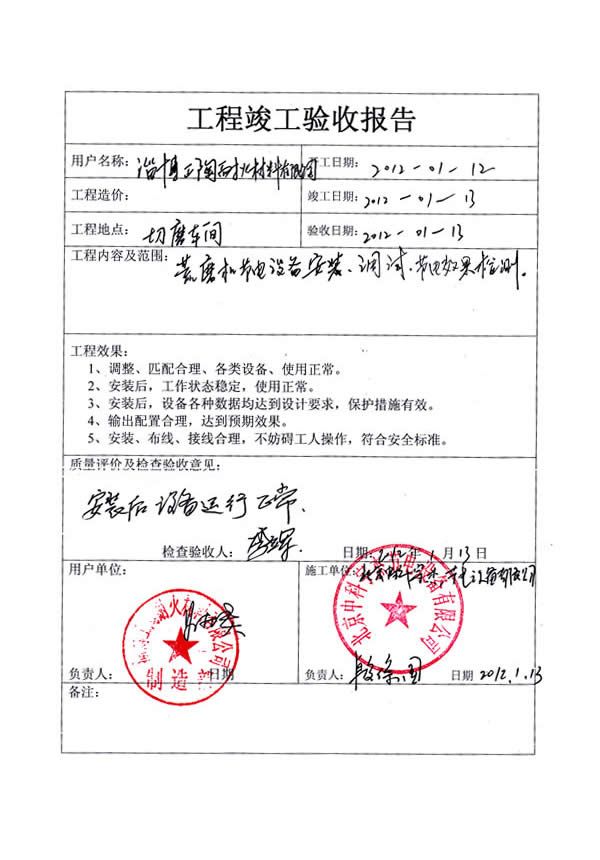 工程竣工验收报告
用户名称: 淄博 耐火材料有限公司 开工日期: 2012-01-12
工程造价: 竣工日期: 2012-01-13
工程地点: 切磨车间 验收日期: 2012-01-13
工程内容及范围: 荒磨机节电设备安装、调试、节电效果检测。
工程效果:
1、调整、匹配合理、各类设备、使用正常。
2、安装后，工作状态稳定，使用正常。
3、安装后，设备各种数据均达到设计要求，保护措施有效。
4、输出配置合理，达到预期效果。
5、安装、布线、接线合理，不妨碍工人操作，符合安全标准。
质量评价及检查验收意见:
安装后设备运行正常.
检查验收人: 日期: 2012年1月13日
用户单位: 施工单位: 北京中科 节电设备有限公司
火 限公司
制造部
北京中科 电设备有限公司
负责人: 日期 负责人: 日期 2012.1.13
备注: